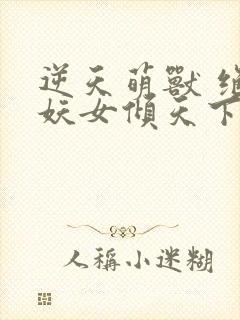 逆天萌獸
妖女傾天下
人稱小迷糊